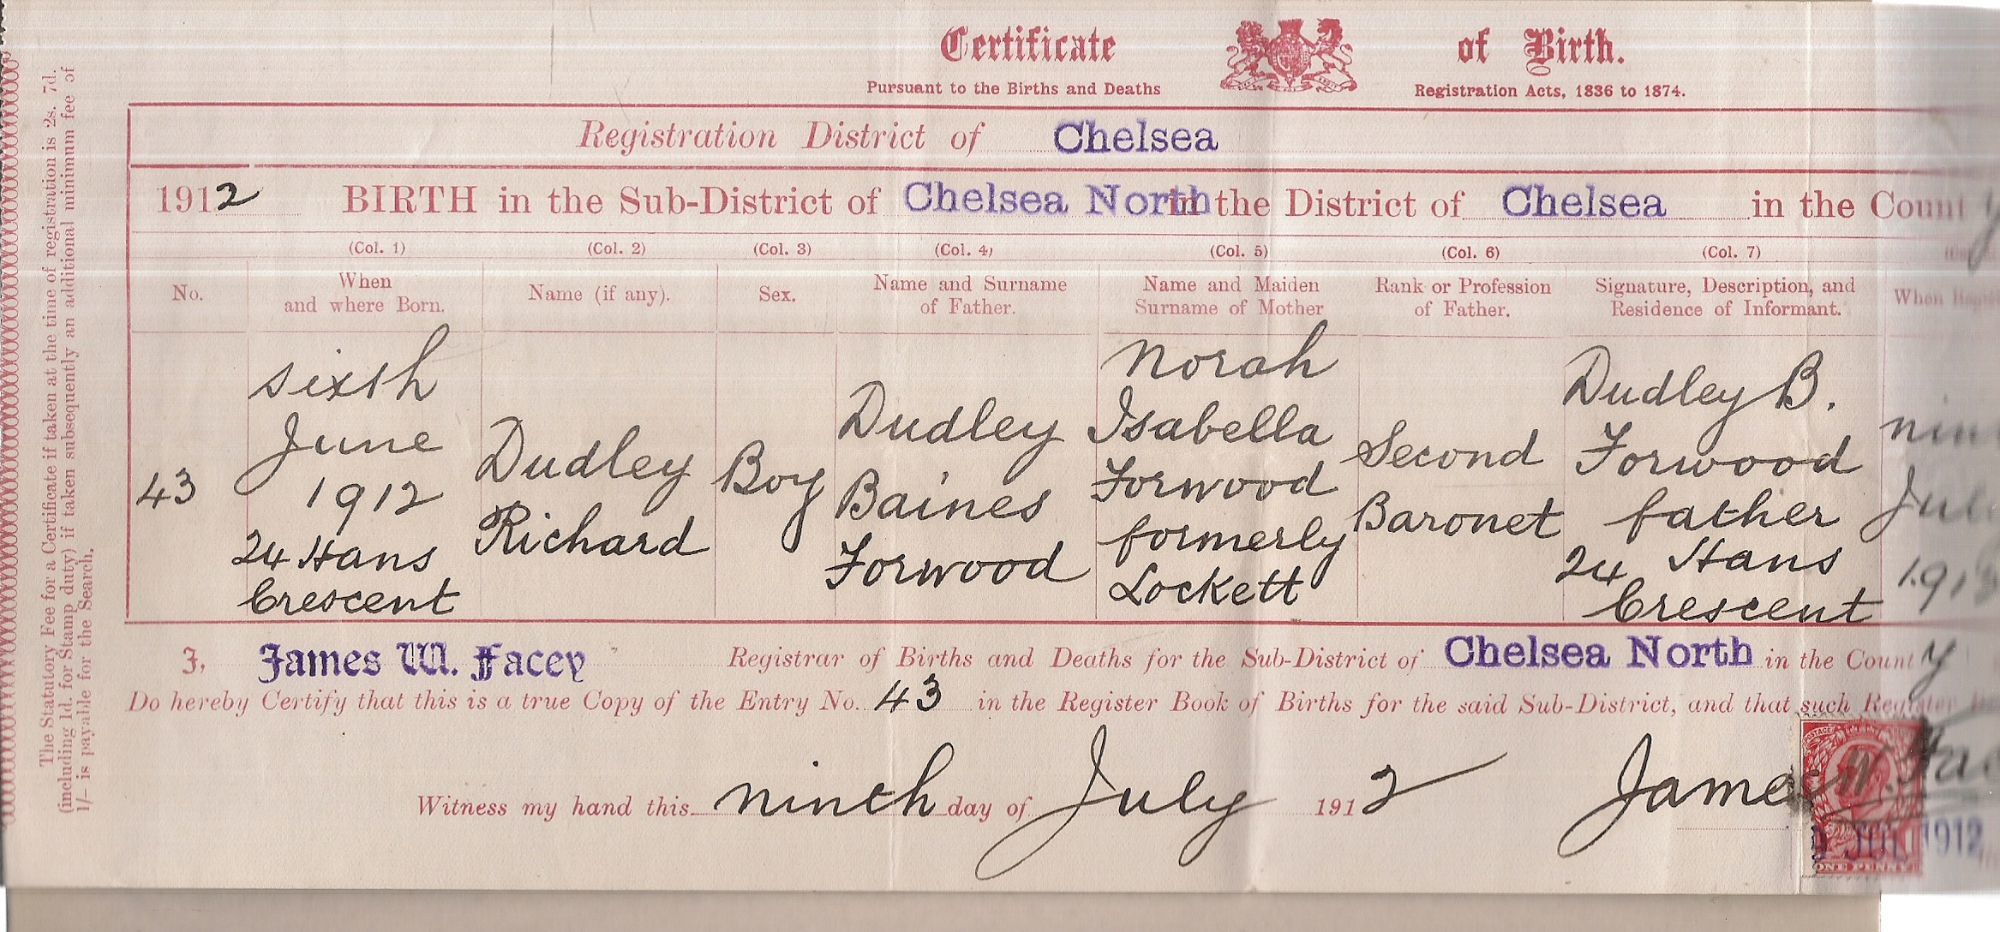 Certificate of Birth.
Pursuant to the Births and Deaths Registration Acts, 1836 to 1874.
Registration District of Chelsea
1912 BIRTH in the Sub-District of Chelsea North in the District of Chelsea in the County
(Col. 1) (Col. 2) (Col. 3) (Col. 4) (Col. 5) (Col. 6) (Col. 7)
No.
When
and where Born.
Name (if any).
Sex.
Name and Surname
of Father.
Name and Maiden
Surname of Mother
Rank or Profession
of Father.
Signature, Description, and
Residence of Informant.
When
43
sixth
June
1912
24 Hans
Crescent
Dudley
Richard
Boy
Dudley
Baines
Forwood
Norah
Isabella
Forwood
formerly
Lockett
Second
Baronet
Dudley B.
Forwood
father
24 Hans
Crescent
I, James W. Facey Registrar of Births and Deaths for the Sub-District of Chelsea North in the County
Do hereby Certify that this is a true Copy of the Entry No. 43 in the Register Book of Births for the said Sub-District, and that such Register
Witness my hand this ninth day of July 1912 James W.
JUL 1912
ONE PENNY
The Statutory Fee for a Certificate if taken at the time of registration is 2s. 7d.
(including 1d. for Stamp duty) if taken subsequently an additional minimum fee of
1/- is payable for the Search.